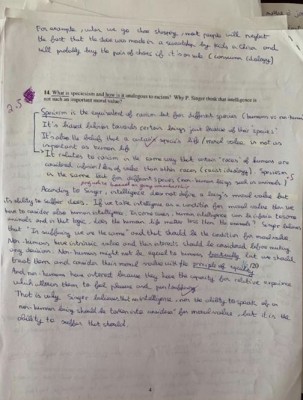 For example, when we go shoe shopping, most people will neglect
the fact that the shoes was made in a sweatshop by kids in China and
will probably buy the pair of shoes if it is on sale (consumism ideology)
14. What is speciesism and how is it analogous to racism? Why P. Singer think that intelligence is
not such an important moral value?
2.5
Specism is the equivalent of racism but for different species (humans vs non-humans
It's biased behavior towards certain beings just because of their species.
It's also the belief that a species' life/moral value is not as
important as human life
It relates to racism in the same way that certain "races" of humans are
considered inferior/less of value than other races (racist ideology). Specism
is the same but for different species (non-human beings such as animals)
prejudice based on group membership
According to Singer, intelligence does not define a being's moral value but
its ability to suffer does. If we take intelligence as a condition for moral value then we
have to consider also human intelligence. In some cases, human intelligence can be inferior towards
animals and in that logic, does the human life matter less than the animals? Singer believes
that "In suffering we are the same" and that should be the condition for moral value
Non-humans have intrinsic value and their interests should be considered before making
any decision. Non-humans might not be equal to humans factually but we should
treat them and consider their moral value with the principle of equality
And non-humans have interest because they have the capacity for relative experience
which allows them to feel pleasure and pain/suffering.
That is why Singer believes that no intelligence, nor the ability to speak of a
non-human being should be taken into consideration for moral value, but it is the
ability to suffer that should.
4